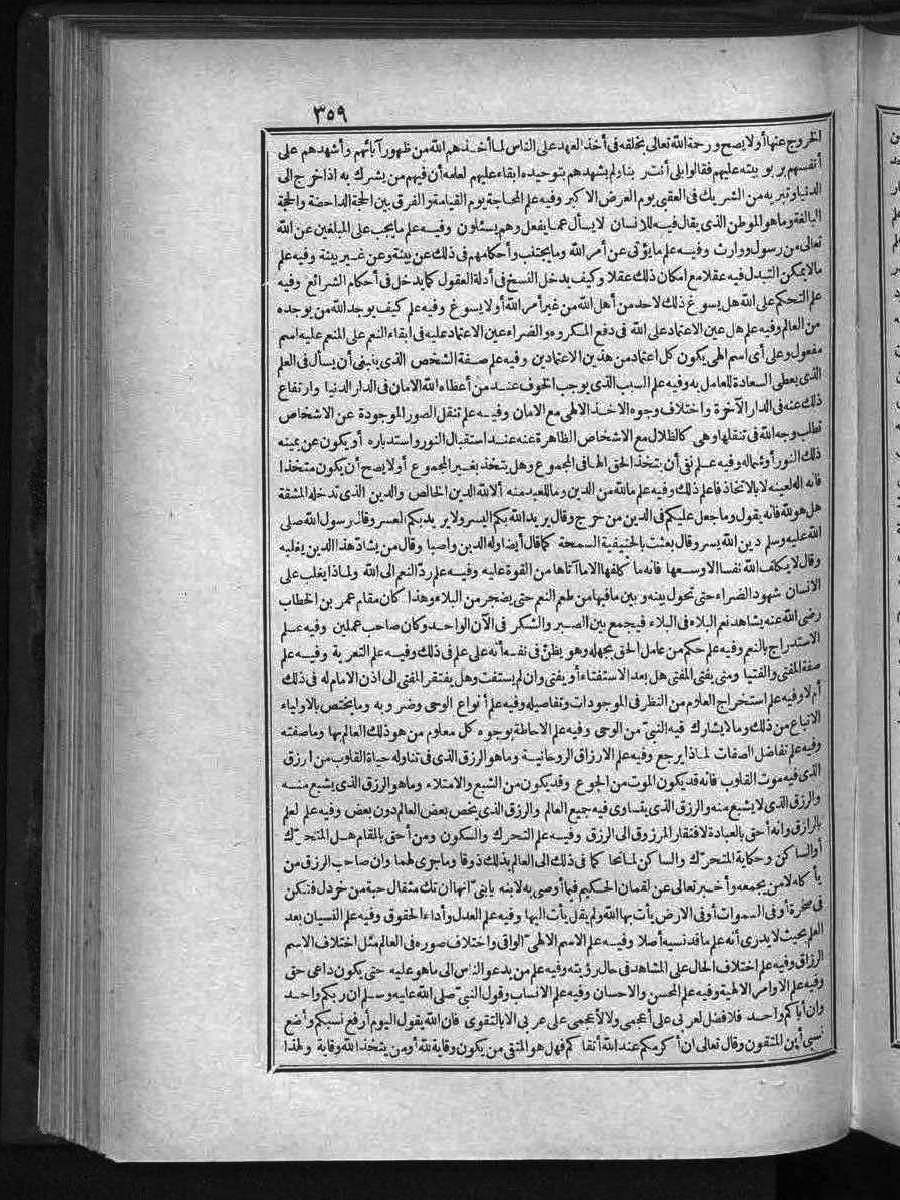 ٣٥٩
الخروج عنها أولا يصح ورحمة الله تعالى بخلقه فى أخذ العهد على الناس لما أخذهم الله من ظهور آبائهم وأشهدهم على
أنفسهم بربوبيته عليهم فقالوا بلى أنت ربنا ولم يشهدهم بتوحيده ابقاء عليهم لعلمه أن فيهم من يشرك به اذا خرج الى
الدنيا وتبريه من الشريك فى العقبى يوم العرض الاكبر وفيه علم المحاجة يوم القيامة والفرق بين الحجة الداحضة والحجة
البالغة وما هو الموطن الذى يقال فيه للانسان لا يسأل عما يفعل وهم يسئلون وفيه علم ما يجب على المبلغين عن الله
تعالى من رسول ووارث وفيه علم ما يؤتى عن أمر الله وما يجتنب وأحكامهم فى ذلك عن بينة وعن غير بينة وفيه علم
ما لا يمكن التبدل فيه عقلا مع امكان ذلك عقلا وكيف يدخل النسخ فى أدلة العقول كما يدخل فى أحكام الشرائع وفيه
علم التحكم على الله هل يسوغ ذلك لاحد من أهل الله من غير أمر الله أولا يسوغ وفيه علم كيف يوجد الله من يوجده
من العالم وفيه علم هل عين الاعتماد على الله فى دفع المكروه والضراء عين الاعتماد عليه فى ابقاء النعم على المنعم عليه اسم
مفعول وعلى أى اسم الهى يكون كل اعتماد من هذين الاعتمادين وفيه علم صفة الشخص الذى ينبغى أن يسأل فى العلم
الذى يعطى السعادة للعامل به وفيه علم السبب الذى يوجب الخوف عند من أعطاه الله الامان فى الدار الدنيا وارتفاع
ذلك عنه فى الدار الآخرة واختلاف وجوه الاخذ الالهى مع الامان وفيه علم تنقل الصور الموجودة عن الاشخاص
تطلب وجه الله فى تنقلها وهى كالظلال مع الاشخاص الظاهرة عنه عند استقبال النور واستدباره أو يكون عن يمينه
ذلك النور أو شماله وفيه علم نفى أن يتخذ الحق الها فى المجموع وهل يتخذ بغير المجموع أولا يصح أن يكون متخذا
فانه اله لعينه لا بالاتخاذ فاعلم ذلك وفيه علم ما لله من الدين وما للعبد منه ألا لله الدين الخالص والدين الذى تدخله المشقة
هل هو لله فانه يقول وما جعل عليكم فى الدين من حرج وقال يريد الله بكم اليسر ولا يريد بكم العسر وقال رسول الله صلى
الله عليه وسلم دين الله يسر وقال بعثت بالحنيفية السمحة كما قال أيضا وله الدين واصبا وقال من يشاد هذا الدين يغلبه
وقال لا يكلف الله نفسا الا وسعها فانه ما كلفها الا ما آتاها من القوة عليه وفيه علم ردّ النعم الى الله ولماذا يغلب على
الانسان شهود الضراء حتى تحول بينه وبين ما فيها من طعم النعم حتى يضجر من البلاء وهذا كان مقام عمر بن الخطاب
رضى الله عنه يشاهد نعم البلاء فى البلاء فيجمع بين الصبر والشكر فى الآن الواحد وكان صاحب عملين وفيه علم
الاستدراج بالنعم وفيه علم حكم من عامل الحق بجهله وهو يظنّ فى نفسه أنه على علم فى ذلك وفيه علم التعرية وفيه علم
صفة المفتى والفتيا ومتى يفتى المفتى هل بعد الاستفتاء أو يفتى وان لم يستفت وهل يفتقر المفتى الى اذن الامام له فى ذلك
أم لا وفيه علم استخراج العلوم من النظر فى الموجودات وتفاصيله وفيه علم أنواع الوحى وضروبه وما يختص بالاولياء
الاتباع من ذلك وما لا يشارك فيه النبىّ من الوحى وفيه علم الاحاطة بوجوه كل معلوم من هو ذلك العالم بها وما صفته
وفيه علم تفاضل الصفات لماذا يرجع وفيه علم الارزاق الروحانية وما هو الرزق الذى فى تناوله حياة القلوب من الرزق
الذى فيه موت القلوب فانه قد يكون الموت من الجوع وقد يكون من الشبع والامتلاء وما هو الرزق الذى يشبع منه
والرزق الذى لا يشبع منه والرزق الذى يتساوى فيه جميع العالم والرزق الذى يخص بعض العالم دون بعض وفيه علم العلم
بالرازق وانه أحق بالعبادة لافتقار المرزوق الى الرزق وفيه علم التحرك والسكون ومن أحق بالمقام هل المتحرّك
أو الساكن وحكاية المتحرّك والساكن لما تحاكما فى ذلك الى العالم بذلك ذوقا وما جرى لهما وان صاحب الرزق من
يأكله لا من يجمعه وأخبر تعالى عن لقمان الحكيم فيما أوصى به لابنه يابنىّ انها ان تك مثقال حبة من خردل فتكن
فى صخرة أو فى السموات أو فى الارض يأت بها الله ولم يقل يأت اليها وفيه علم العدل وأداء الحقوق وفيه علم النسيان بعد
العلم بحيث لا يدرى أنه علم ما قد نسيه أصلا وفيه علم الاسم الالهىّ الواقى واختلاف صوره فى العالم مثل اختلاف الاسم
الرزاق وفيه علم اختلاف الحال على المشاهد فى حال رؤيته وفيه علم من يدعو الناس الى ما هو عليه حتى يكون داعى حق
وفيه علم الاوامر الالهية وفيه علم المحسن والاحسان وفيه علم الانساب وقول النبىّ صلى الله عليه وسلم ان ربكم واحد
وان أباكم واحد فلا فضل لعربى على أعجمى ولا لأعجمى على عربى الا بالتقوى فان الله يقول اليوم أرفع نسبكم وأضع
نسبى أين المتقون وقال تعالى ان أكرمكم عند الله أتقاكم فهل هو المتقى من يكون وقاية لله أو من يتخذ الله وقاية ولهذا